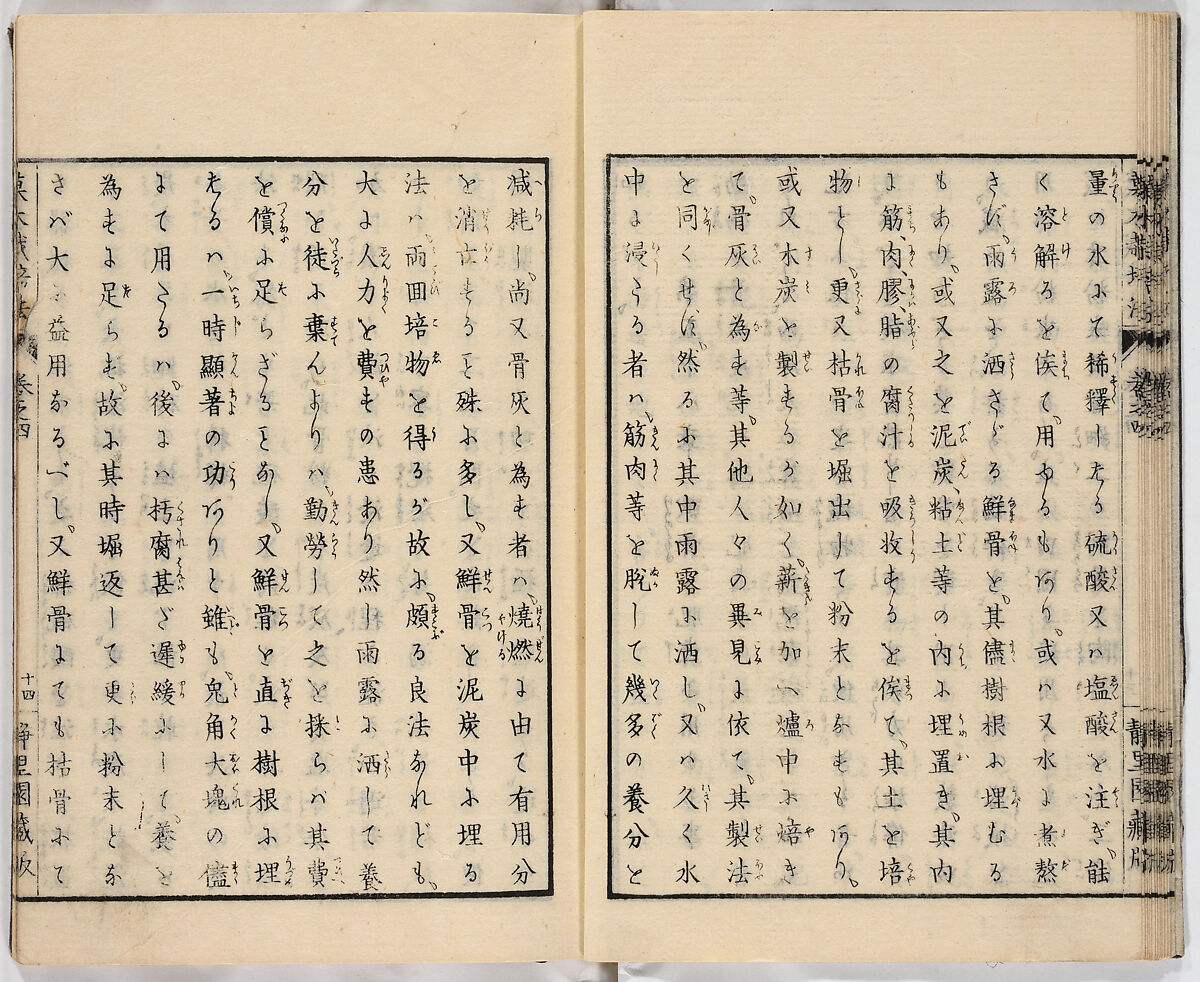 量の水にて稀釋したる硫酸又ハ塩酸を注ぎ、能
く溶解るを俟て、用ゆるもあり、或ハ又水に煮熬
さバ、雨露に洒さゞる鮮骨を、其儘樹根に埋むる
もあり、或又之を泥炭、粘土等の内に埋置き、其内
に筋、肉、膠、脂の腐汁を吸收するを俟て、其土を培
物とし、更又枯骨を堀出して粉末となすもあり、
或又木炭を製するが如く、薪を加へ爐中に焙き
て、骨灰と為す等、其他人々の異見に依て、其製法
を同くせず、然るに其中雨露に洒し、又ハ久く水
中に浸したる者ハ、筋肉等を脱して幾多の養分を
減耗し、尚又骨灰と為す者ハ、燒燃に由て有用分
を消亡すると殊に多し、又鮮骨を泥炭中に埋る
法ハ、両囬培物を得るが故に、頗る良法なれども、
大に人力を費すの患あり然し雨露に洒して養
分を徒に棄んよりハ、勤勞して之を採らバ其費
を償に足らざるとなし、又鮮骨を直に樹根に埋
たるハ、一時顯著の功ありと雖も、鬼角大塊の儘
にて用たるハ、後にハ朽腐甚ざ遅緩にして養を
為すに足らず、故に其時堀返して更に粉末とな
さバ大に益用なるべし、又鮮骨にても枯骨にて
菓木栽培法 巻之四
十四 静里園藏版